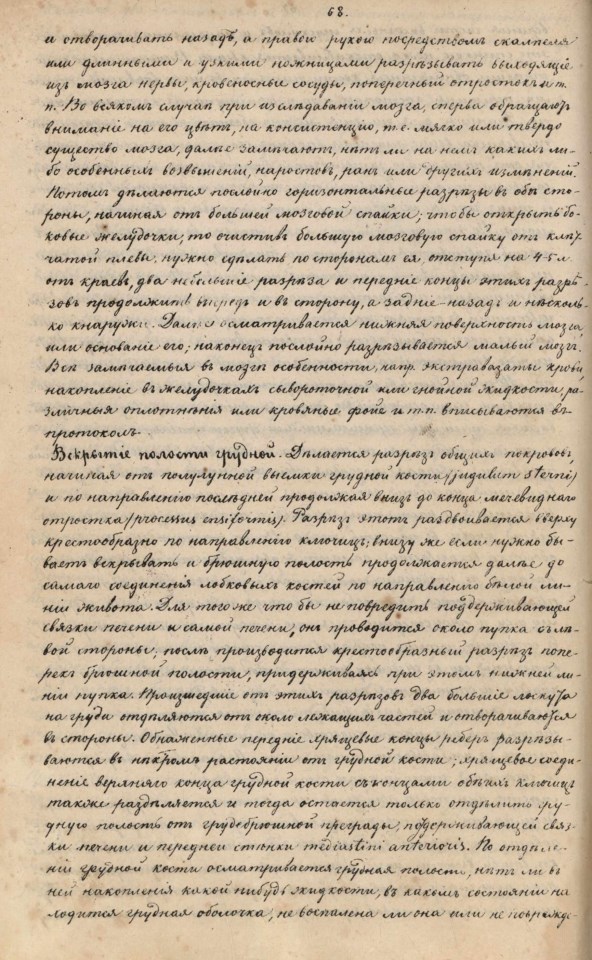 68.
и отворачивать назадъ, а правою рукою посредствомъ скалпеля
или длинными и узкими ножницами разрѣзывать выходящіе
изъ мозга нервы, кровеносные сосуды, поперечный отростокъ и т.
п. Во всякомъ случаѣ при изслѣдованіи мозга, сперва обращаютъ
вниманіе на его цвѣтъ, на консистенцію, т.е. мягко или твердо
существо мозга, далѣе замѣчаютъ, нѣтъ ли на немъ какихъ ли-
бо особенныхъ возвышеній, наростовъ, ранъ или другихъ измѣненій.
Потомъ дѣлаются послойно горизонтальные разрѣзы въ обѣ сто-
роны, начиная отъ большей мозговой спайки; чтобы открыть бо-
ковые желудочки, то очистивъ большую мозговую спайку отъ клѣт-
чатой плевы, нужно сдѣлать по сторонамъ ея, отступя на 4-5 л.
отъ краевъ, два небольшіе разрѣза и передніе концы этихъ разрѣ-
зовъ продолжить впередъ и въ сторону, а задніе - назадъ и нѣсколь-
ко кнаружи. Далѣе осматривается нижняя поверхность мозга
или основаніе его; наконецъ послойно разрѣзывается малый мозгъ.
Всѣ замѣчаемыя въ мозгѣ особенности, напр. экстравазаты крови
накопленіе въ желудочкахъ сывороточной или гнойной жидкости, ра-
зличныя оплотнѣнія или кровяные фойе и т.п. вписываются въ
протоколъ.
Вскрытіе полости грудной. Дѣлается разрѣзъ общихъ покрововъ
начиная отъ полулунной выемки грудной кости (jugulum sterni)
и по направленію послѣдней продолжая внизъ до конца мечевиднаго
отростка (processus ensiformis). Разрѣзъ этотъ раздвоивается вверху
крестообразно по направленію ключицъ; внизу же если нужно бы-
ваетъ вскрывать и брюшную полость продолжается далѣе до
самаго соединенія лобковыхъ костей по направленію бѣлой ли-
ніи живота. Для того же что бы не повредить поддерживающей
связки печени и самой печени, онъ проводится около пупка съ лѣ-
вой стороны; послѣ производится крестообразный разрѣзъ попе-
рекъ брюшной полости, придерживаясь при этомъ нижней ли-
ніи пупка. Произшедшіе отъ этихъ разрѣзовъ два большіе лоскута
на груди отдѣляются отъ около лежащихъ частей и отворачиваются
въ стороны. Обнаженные передніе хрящевые концы реберъ разрѣзы-
ваются въ нѣкромъ растояніи отъ грудной кости; хрящевое соеди-
неніе верхняго конца грудной кости съ концами обѣихъ ключицъ
также раздѣляется и тогда остается только отдѣлить гру-
дную полость отъ грудобрюшной преграды, поддерживающей связ-
ки печени и передней стѣнки mediastini anterioris. По отдѣле-
ніи грудной кости осматривается грудная полость, нѣтъ ли въ
ней накопленія какой нибудь жидкости, въ какомъ состояніи на
ходится грудная оболочка, не воспалена ли она или не поврежде-